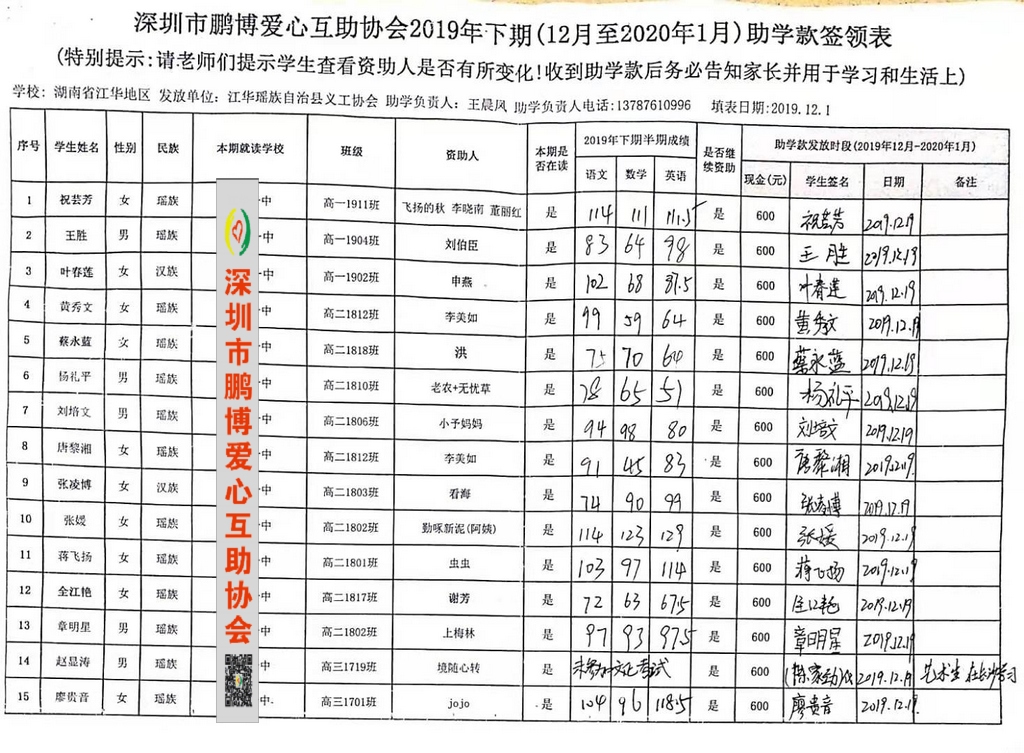 深圳市鹏博爱心互助协会2019年下期(12月至2020年1月)助学款签领表
(特别提示:请老师们提示学生查看资助人是否有所变化!收到助学款后务必告知家长并用于学习和生活上)
学校: 湖南省江华地区 发放单位: 江华瑶族自治县义工协会 助学负责人: 王晨凤 助学负责人电话:13787610996 填表日期:2019.12.1
序号 学生姓名 性别 民族 本期就读学校 班级 资助人 本期是否在读 2019年下期半期成绩 是否继续资助 助学款发放时段(2019年12月-2020年1月)
语文 数学 英语 现金(元) 学生签名 日期 备注
1 祝芸芳 女 瑶族 一中 高一1911班 飞扬的秋 李晓南 董丽红 是 114 111 111.5 是 600 祝芸芳 2019.12.19
2 王胜 男 瑶族 一中 高一1904班 刘伯臣 是 83 64 98 是 600 王胜 2019.12.19
3 叶春莲 女 汉族 一中 高一1902班 申燕 是 102 68 87.5 是 600 叶春莲 2019.12.19
4 黄秀文 女 瑶族 一中 高二1812班 李美如 是 99 59 64 是 600 黄秀文 2019.12.19
5 蔡永蓝 女 瑶族 一中 高二1818班 洪 是 75 70 60 是 600 蔡永蓝 2019.12.19
6 杨礼平 男 瑶族 一中 高二1810班 老农+无忧草 是 78 65 51 是 600 杨礼平 2019.12.19
7 刘培文 男 瑶族 一中 高二1806班 小予妈妈 是 94 98 80 是 600 刘培文 2019.12.19
8 唐黎湘 女 瑶族 一中 高二1812班 李美如 是 91 45 83 是 600 唐黎湘 2019.12.19
9 张凌博 女 汉族 一中 高二1803班 看海 是 74 90 99 是 600 张凌博 2019.12.19
10 张媛 女 瑶族 一中 高二1802班 勤啄新泥(阿姨) 是 114 123 129 是 600 张媛 2019.12.19
11 蒋飞扬 女 瑶族 一中 高二1801班 虫虫 是 103 97 114 是 600 蒋飞扬 2019.12.19
12 全江艳 女 瑶族 一中 高二1817班 谢芳 是 72 63 67.5 是 600 全江艳 2019.12.19
13 章明星 男 瑶族 一中 高二1802班 上梅林 是 97 93 97.5 是 600 章明星 2019.12.19
14 赵显涛 男 瑶族 一中 高三1719班 境随心转 是 未参加文化考试 是 600 2019.12.19 艺术生 在长沙学习
15 廖贵音 女 瑶族 一中 高三1701班 jojo 是 104 96 118.5 是 600 廖贵音 2019.12.19
深圳市鹏博爱心互助协会